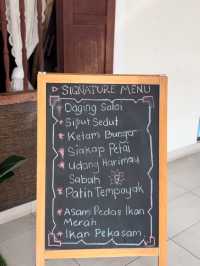 SIGNATURE MENU
Daging Salai
Siput Sedut
Ketam Bunga
Siakap Petai
Udang Harimau
Sabah
Patin Tempoyak
Asam Pedas Ikan
Merah
Ikan Pekasam